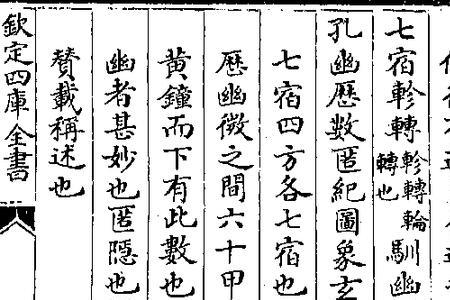 七宿軫轉軫轉輪轉也馴幽
孔幽歴数匿紀圖象玄
七宿四方各七宿也
歴幽微之間六十甲
黄鐘而下有此數也
幽者甚妙也匿隠也
賛載稱述也
欽定四庫全書